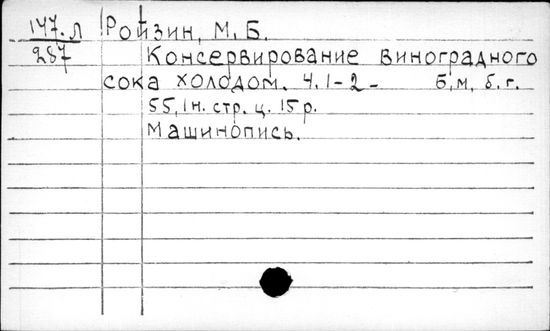 147.л Ройзин, М. Б.
287 Консервирование виноградного
сока холодом. Ч. 1-2- Б, м, б. г.
55, 1н. стр. ц. 15 р.
Машинопись.